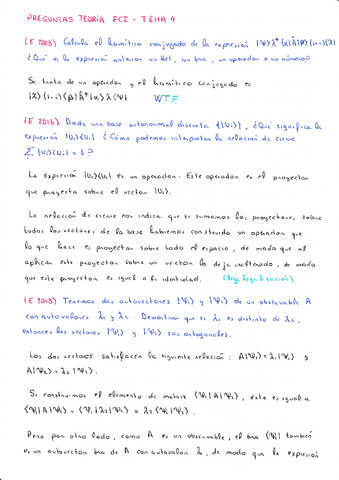 PREGUNTAS TEORÍA FCI - TEMA 4
(E 2013) Calcula el hermítico conjugado de la expresión |Ψ⟩λ*⟨α|Â|β⟩(1-i)⟨χ|
¿Qué es la expresión anterior un ket, un bra, un operador o un número?
Se trata de un operador y el hermítico conjugado es
|χ⟩(1-i)⟨β|Â†|α⟩λ⟨Ψ| WTF
(E 2013) Dada una base ortonormal discreta {|Ui⟩}, ¿Qué significa la
expresión |Ui⟩⟨Ui| ¿Cómo podemos interpretar la relación de cierre
∑|Ui⟩⟨Ui| = 1?
La expresión |Ui⟩⟨Ui| es un operador. Este operador es el proyector
que proyecta sobre el vector |Ui⟩.
La relación de cierre nos indica que si sumamos los proyectores sobre
todos los vectores de la base habremos construido un operador que
lo que hace es proyectar sobre todo el espacio, de modo que al
aplicar este proyector sobre un vector lo deja inalterado, de modo
que este proyector es igual a la identidad.
(E 2013) Tenemos dos autovectores |Ψ1⟩ y |Ψ2⟩ de un observable A
con autovalores λ1 y λ2 Demostrar que si λ1 es distinto de λ2,
entonces los vectores |Ψ1⟩ y |Ψ2⟩ son ortogonales.
Los dos vectores satisfacen la siguiente relación: A|Ψ1⟩=λ1|Ψ1⟩ y
A|Ψ2⟩=λ2|Ψ2⟩.
Si construimos el elemento de matriz ⟨Ψ1|A|Ψ2⟩, éste es igual a
⟨Ψ1|A|Ψ2⟩ = ⟨Ψ1|λ2|Ψ2⟩ = λ2⟨Ψ1|Ψ2⟩.
Pero por otro lado, como A es un observable, el bra ⟨Ψ1| también
es un autovector bra de A con autovalor λ1 de modo que la expresión